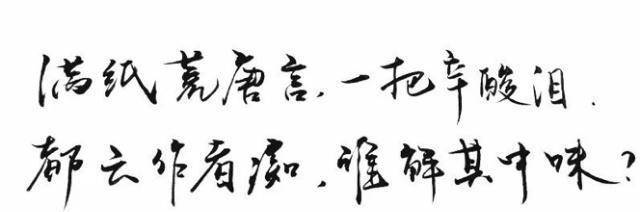 满纸荒唐言,一把辛酸泪.
都云作者痴,谁解其中味?